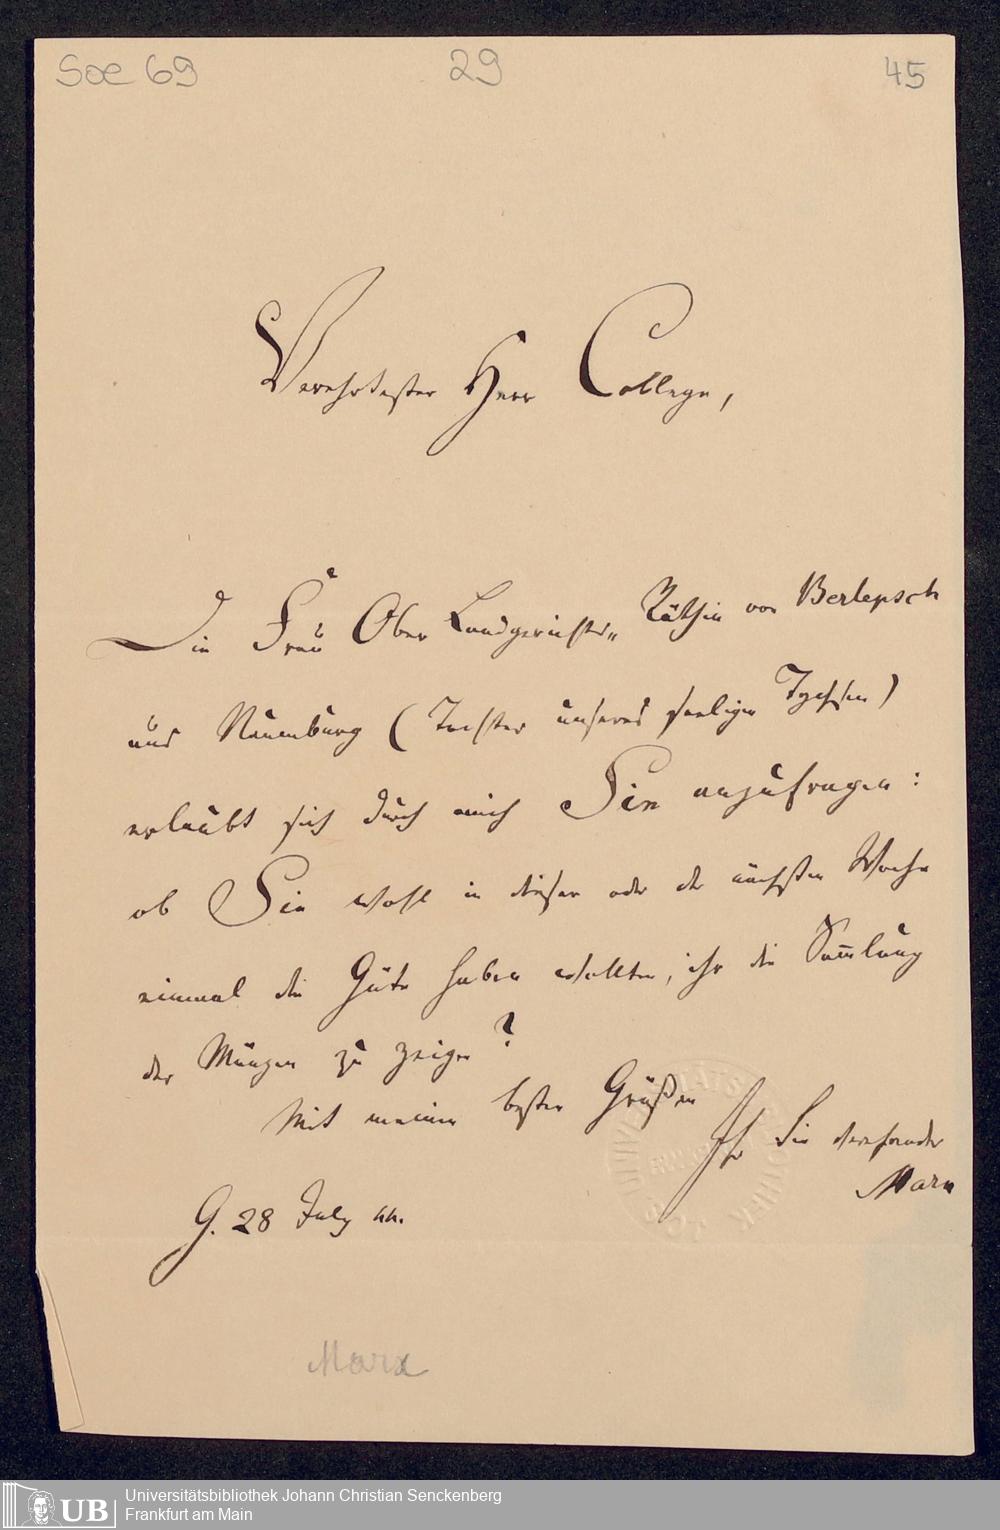 Soe 69 29 45
Verehrtester Herr College,
Die Frau Ober Landgerichts- Räthin von Berlepsch
aus Naumburg (Tochter unseres seeligen Tychsen)
erlaubt sich durch mich Sie anzufragen:
ob Sie wohl in dieser oder der nächsten Woche
einmal die Güte haben wollten, ihr die Sam̅lung
der Münzen zu zeigen?
Mit meinen besten Grüßen
Ihr Sie verehrender
Marx
G. 28 July 44.
Marx
UB
Universitätsbibliothek Johann Christian Senckenberg
Frankfurt am Main